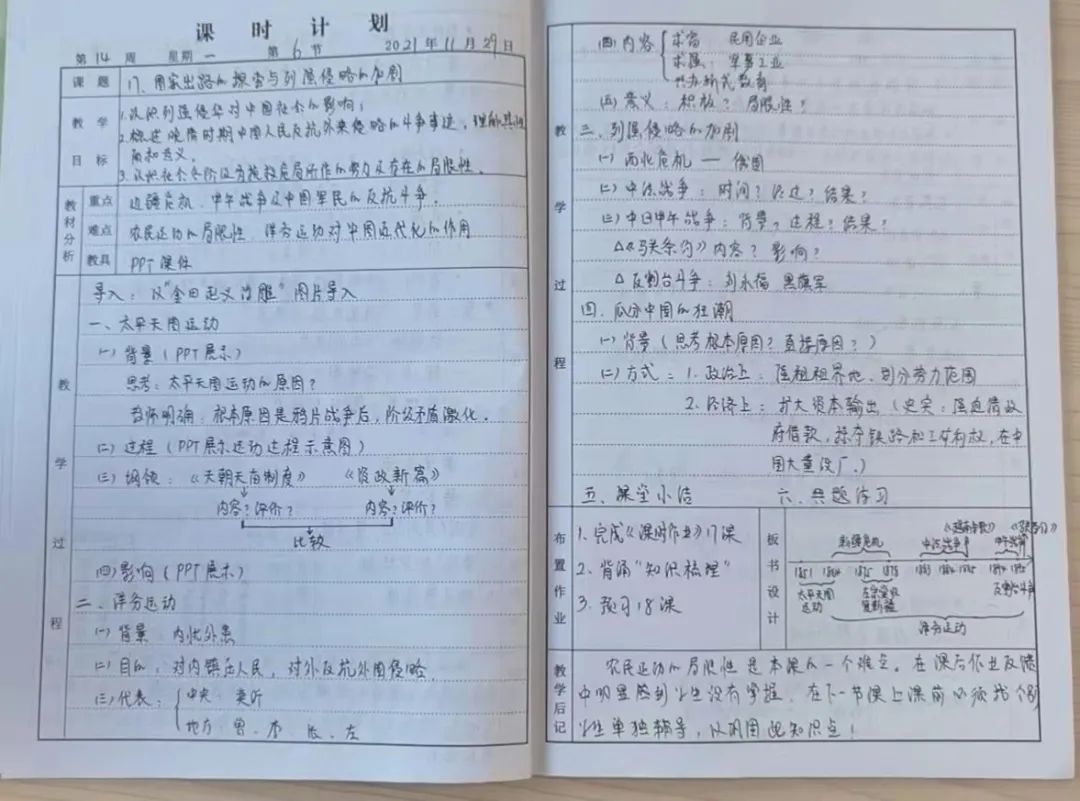 课时计划
第14周 星期一 第6节 2021年11月29日
课题 17. 国家出路的探索与列强侵略的加剧
教学目标
1.认识列强侵华对中国社会的影响;
2.概述晚清时期中国人民反抗外来侵略的斗争事迹,理解其性
质和意义。
3.认识社会各阶级为挽救危局所作的努力及存在的局限性。
教材分析
重点 边疆危机、甲午战争及中国军民的反抗斗争。
难点 农民运动的局限性、洋务运动对中国近代化的作用
教具 PPT课件
教学过程
导入:以"金田起义浮雕"图片导入
一、太平天国运动
(一)背景(PPT展示)
思考:太平天国运动的原因?
老师明确:根本原因是鸦片战争后,阶级矛盾激化。
(二)过程(PPT展示运动过程示意图)
(三)纲领:《天朝田亩制度》 《资政新篇》
内容?评价? 内容?评价?
比较
(四)影响(PPT展示)
二、洋务运动
(一)背景 内忧外患
(二)目的:对内镇压人民,对外反抗外国侵略
(三)代表:中央:奕䜣
地方:曾、李、张、左
教学过程
(四)内容 求富 民用企业
求强:军事工业
兴办新式教育
(五)意义:积极?局限性?
三、列强侵略的加剧
(一)西北危机 — 俄国
(二)中法战争:时间?经过?结果?
(三)中日甲午战争:背景?过程?结果?
△《马关条约》内容?影响?
△反割台斗争:刘永福 黑旗军
四、瓜分中国的狂潮
(一)背景(思考根本原因?直接原因?)
(二)方式:1.政治上:强租租界地、划分势力范围
2.经济上:扩大资本输出(史实:强迫清政
府借款,掠夺铁路和工矿利权,在中
国大量设厂。)
五、课堂小结 六、典题练习
布置作业
1、完成《课时作业》17课
2、背诵"知识梳理"
3、预习18课
板书设计
新疆危机 中法战争
1851 1864
太平天国
运动
左宗棠收
复新疆
反割台斗争
洋务运动
教学后记
农民运动的局限性是本课的一个难点。在课后作业反馈
中明显感到学生没有掌握,在下一节课上课前必须找个别
学生单独辅导,以巩固此知识点!